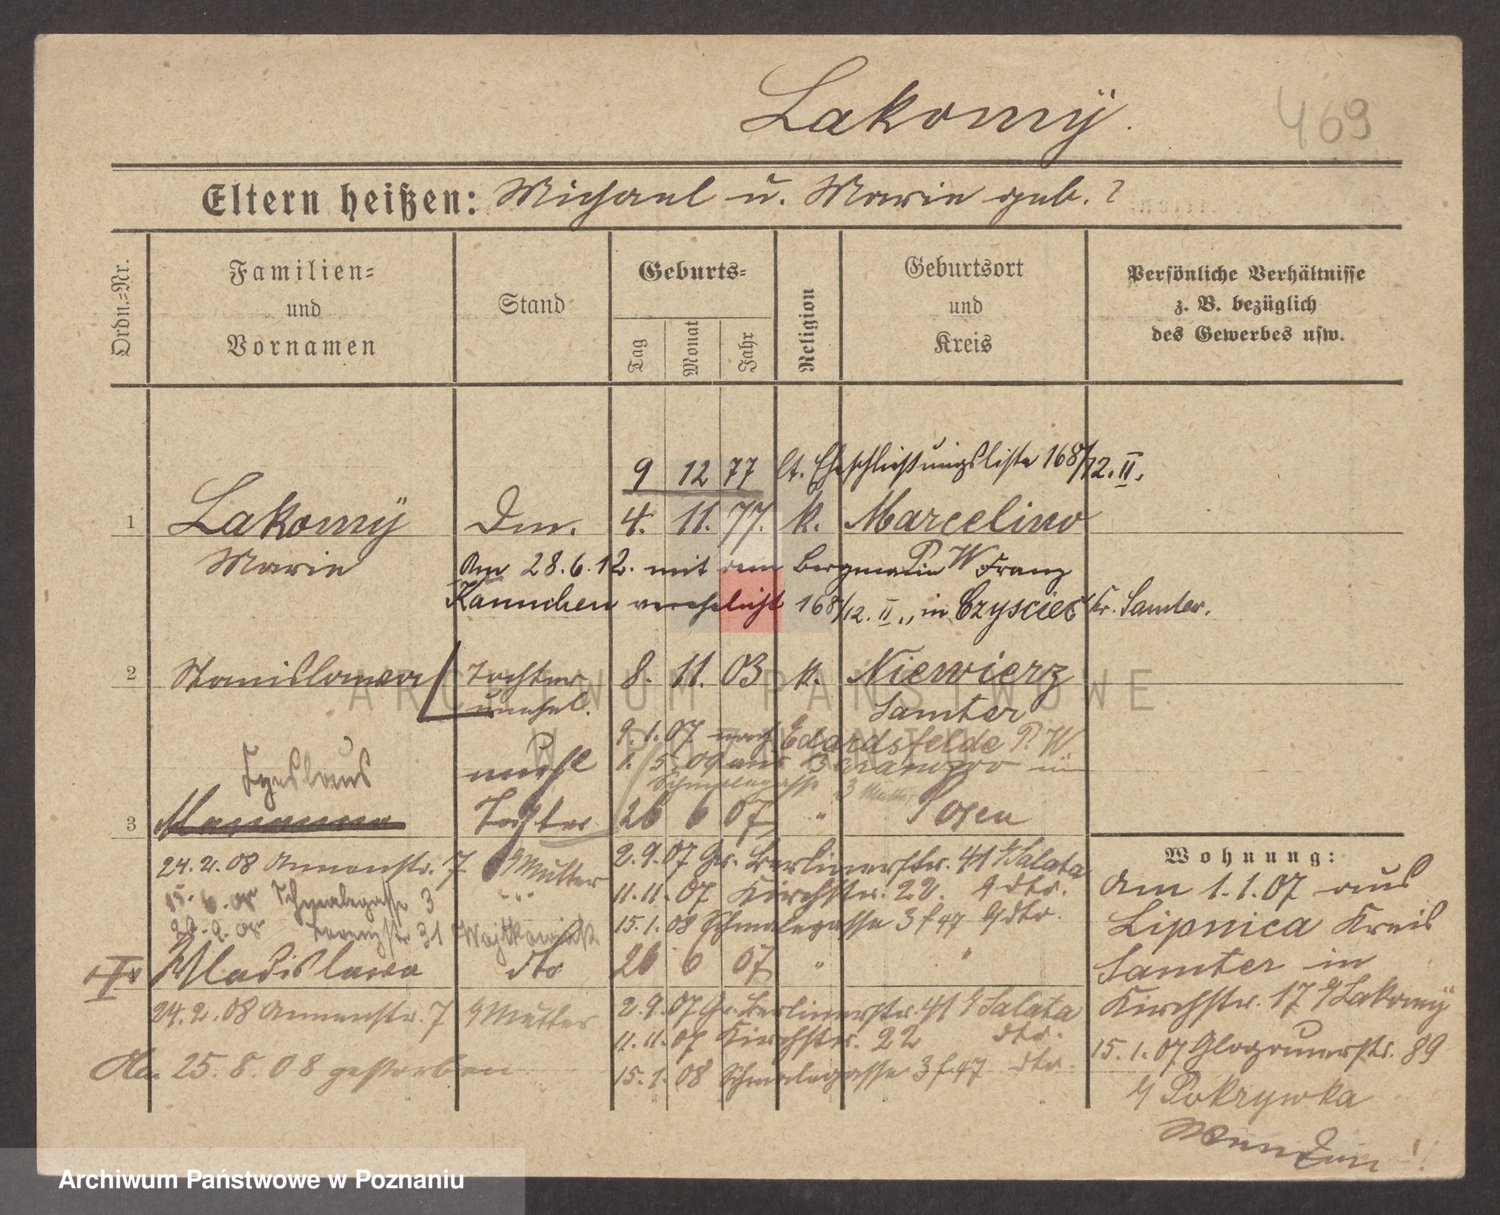 Lakomÿ.
469
Eltern heißen: Michael u. Marie geb. ?
Ordn.=Nr.
Familien=
und
Vornamen
Stand
Geburts=
Tag
Monat
Jahr
Religion
Geburtsort
und
Kreis
Persönliche Verhältnisse
z. B. bezüglich
des Gewerbes usw.
9 12 77 lt. Eheschließungsliste 168/12. II.
1 Lakomÿ Dm. 4. 11. 77. k. Marcelino
Marie Am 28.6.12. mit dem Bergmann Franz
verehelicht 168/12. II., in Kr. Samter.
2 Stanislawa Tochter 8. 11. 03 k. Niewierz
unehel. Samter
9.1.07 nach Edardsfelde P. W.
unehl 1. 5. 09 aus in
Schmalegasse 3 Mutter
3 Marianna Tochter 26 6 07 " Posen
24.2.08 Annenstr. 7 Mutter 2.9.07 Gr. Berlinerstr. 41 Salata
15.6.08 Schmalegasse 3 11.11.07 Kirchstr. 22. dto.
29.9.08 31 15.1.08 Schmalegasse 3 f 47 dto.
Wladislawa dto 26 6 07 " "
24.2.08 Annenstr. 7 Mutter 2.9.07 Gr. Berlinerstr. 41 Salata
11.11.07 Kirchstr. 22 dto.
Am 25.8.08 gestorben 15.1.08 Schmalegasse 3 f 47 dto.
Wohnung:
Am 1.1.07 aus
Lipnica Kreis
Samter in
Kirchstr. 17 Lakomÿ
15.1.07 Glogauerstr. 89
Pokrywka
ARCHIWUM PAŃSTWOWE
W POZNANIU
Archiwum Państwowe w Poznaniu